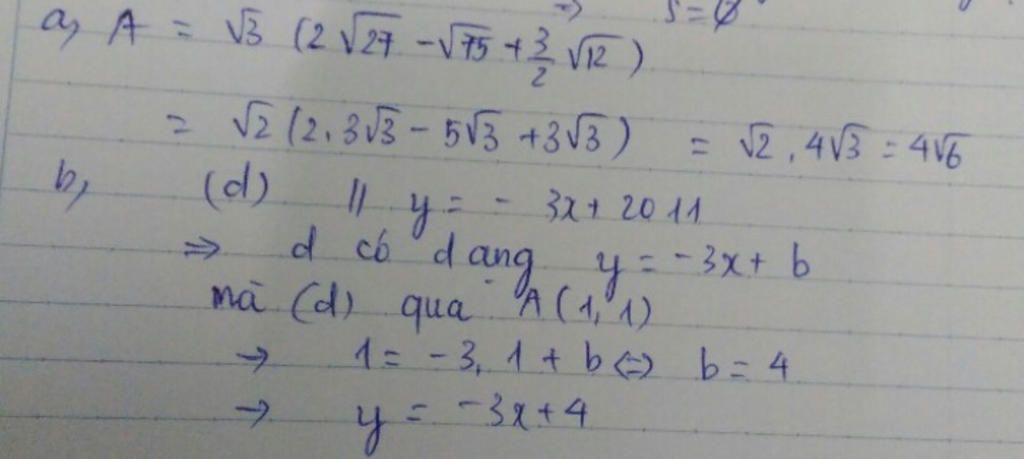 ⇒ S = ∅
a, A = √3 (2√27 - √75 + 3/2 √12)
= √2 (2.3√3 - 5√3 + 3√3) = √2 . 4√3 = 4√6
b, (d) // y = - 3x + 2011
⇒ d có dạng y = -3x + b
mà (d) qua A(1,1)
→ 1 = -3.1 + b ⇔ b = 4
→ y = -3x + 4